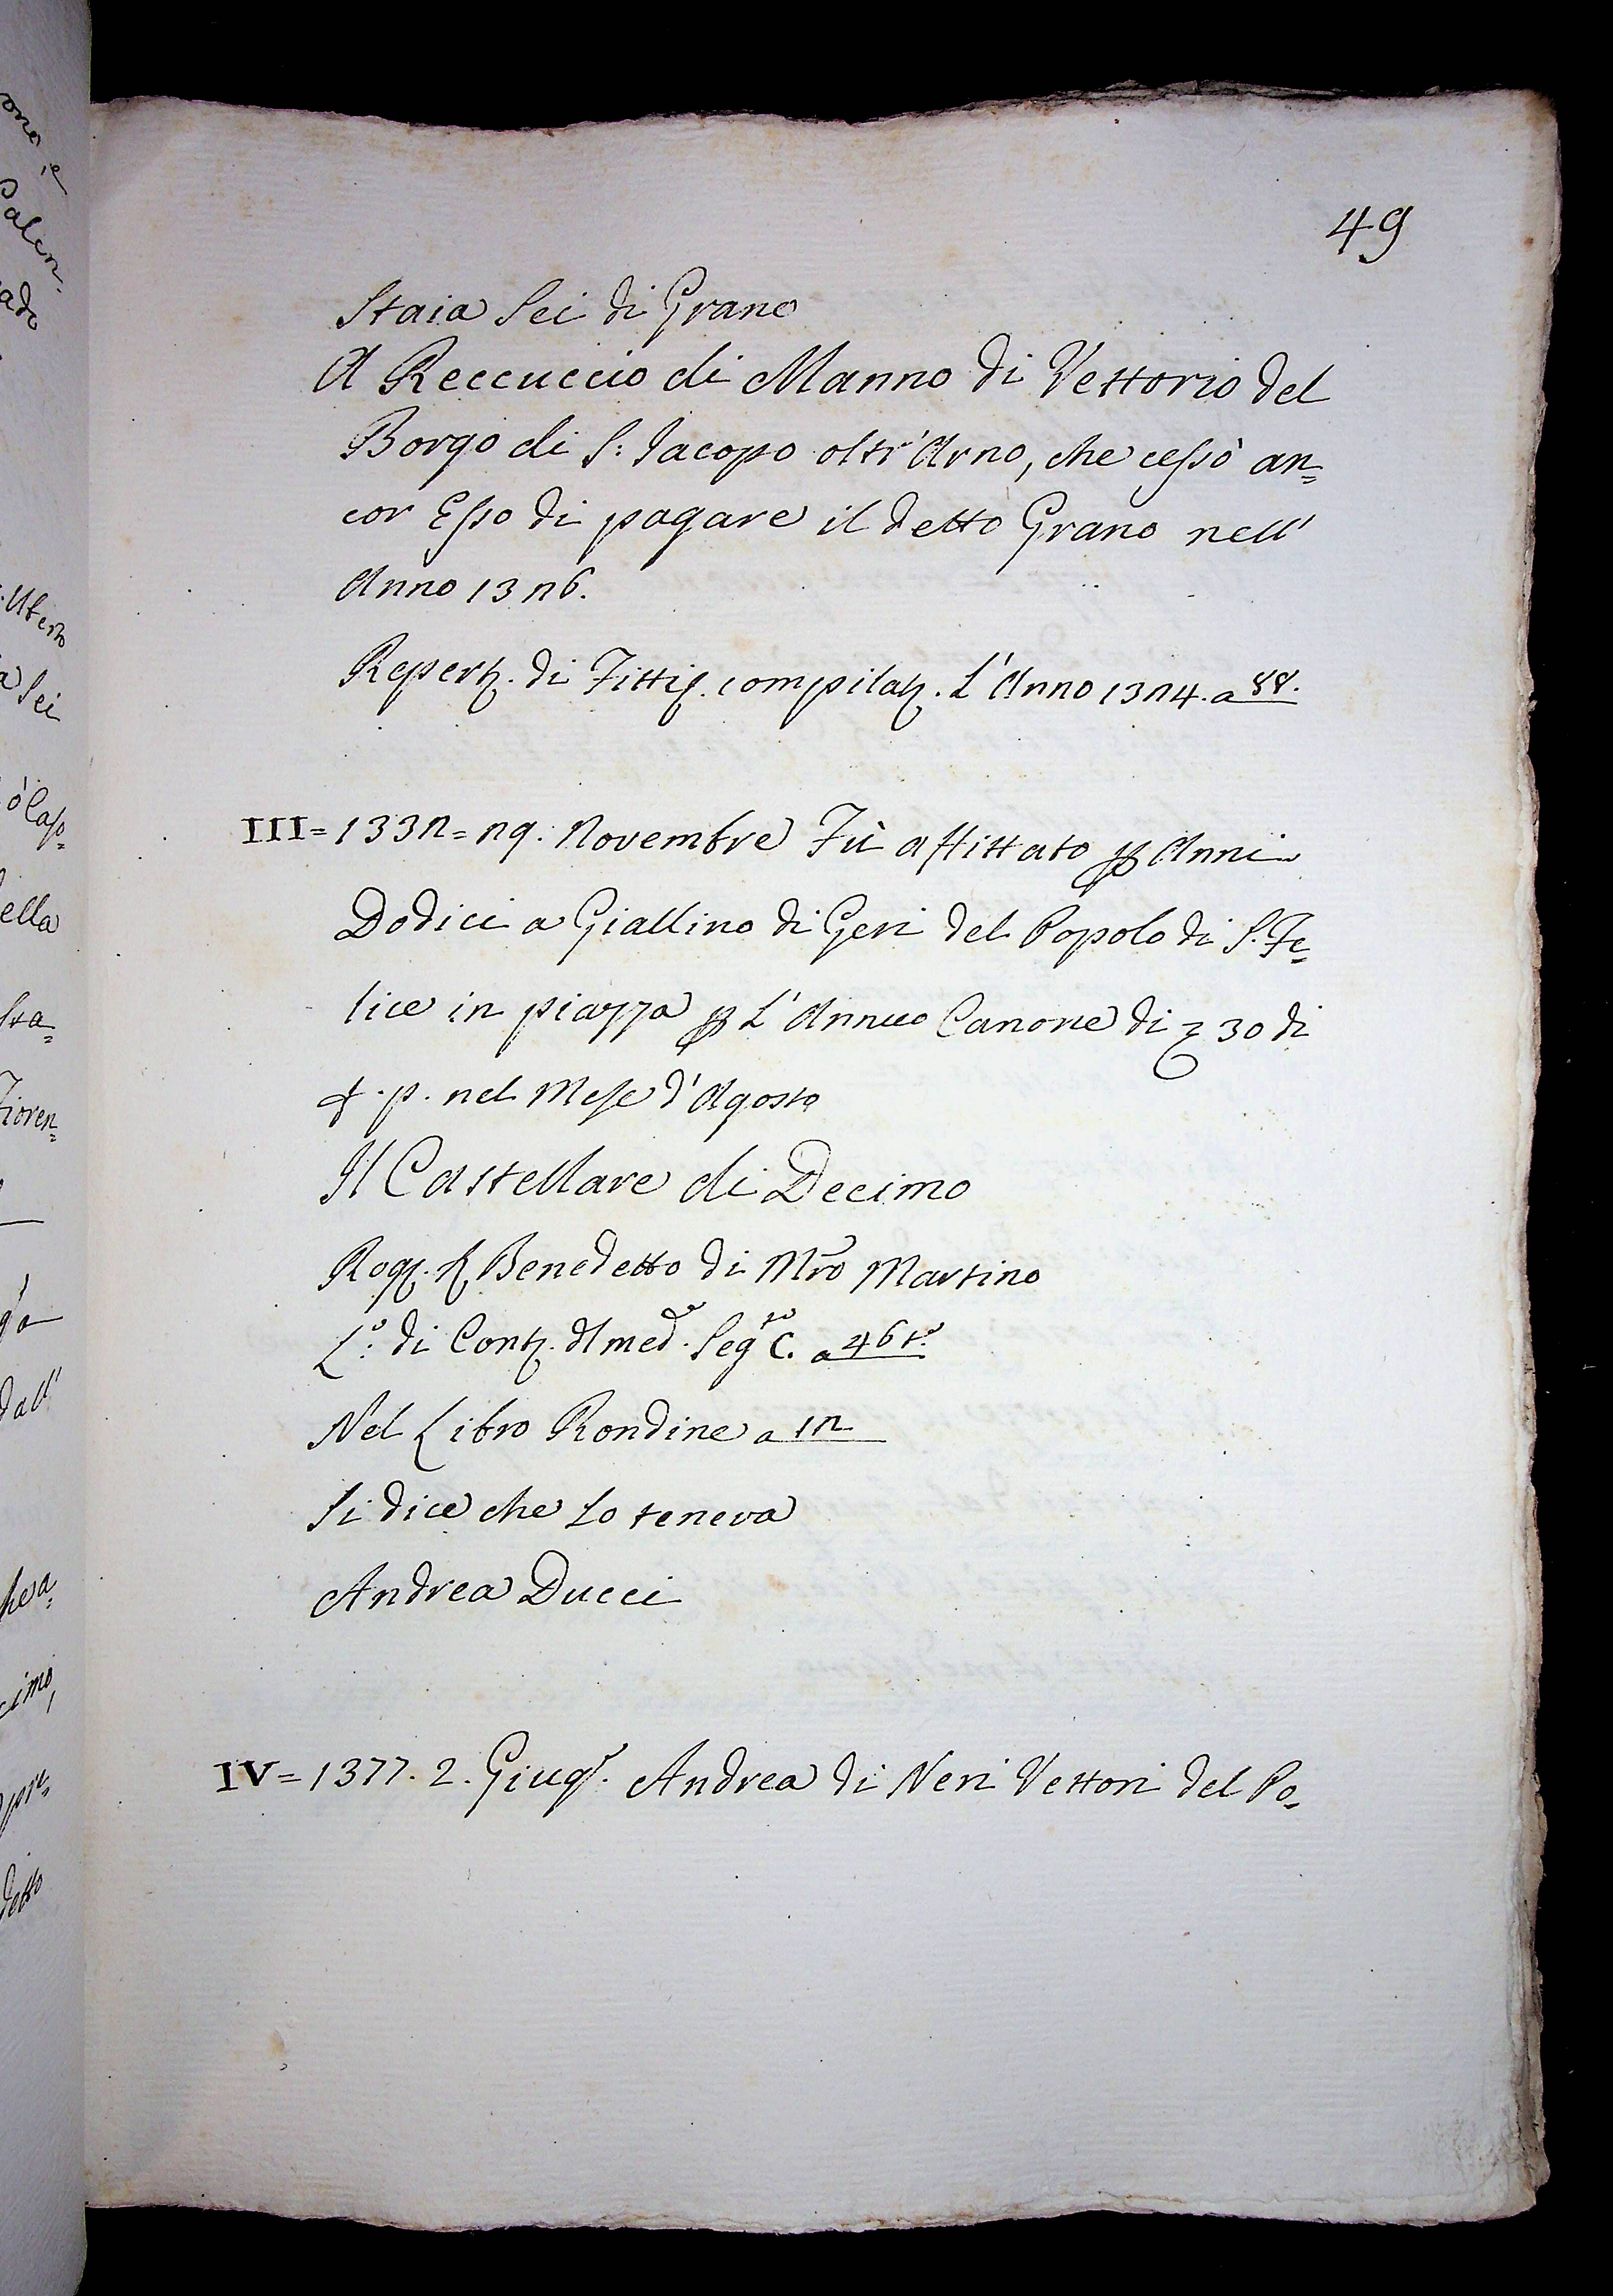 49
Staia Sei di Grano
A Reccuccio di Manno di Vettorio del
Borgo di S: Jacopo oltr'Arno, che cessò an=
cor Esso di pagare il detto Grano nell'
Anno 1326.
Repert. di Fitti. compilat. L'Anno 1324. a 88.
III = 1332 = 29. Novembre Fù affittato p Anni
Dodici a Giallino di Geri del Popolo di S. Fe=
lice in piazza p L'Annuo Canone di 30 di
f. p. nel Mese d'Agosto
Il Castellare di Decimo
Rog. S. Benedetto di Mro Martino
L.o di Cont. del med.o Seg.to C. a 46 t.o
Nel Libro Rondine a 12
Si dice che Lo teneva
Andrea Ducci
IV = 1377. 2. Giug.o Andrea di Neri Vettori del Po=